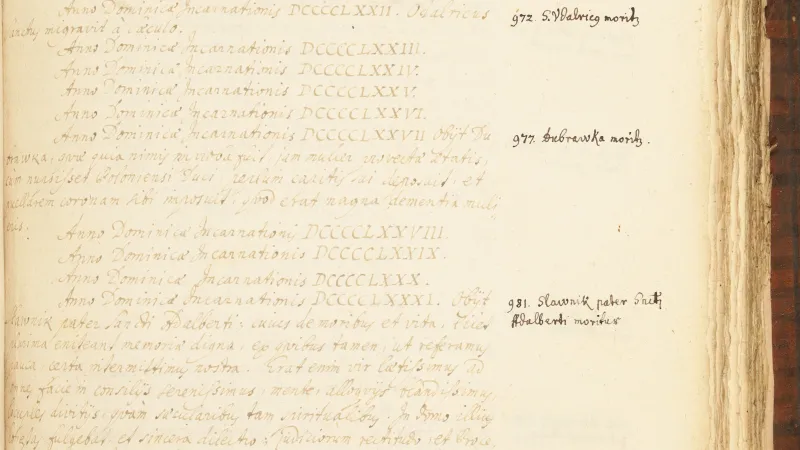 Anno Dominicæ Incarnationis DCCCCLXXII. Vdalricus
sanctus migravit à sæculo.
Anno Dominicæ Incarnationis DCCCCLXXIII.
Anno Dominicæ Incarnationis DCCCCLXXIV.
Anno Dominicæ Incarnationis DCCCCLXXV.
Anno Dominicæ Incarnationis DCCCCLXXVI.
Anno Dominicæ Incarnationis DCCCCLXXVII Obijt Du
brawka, quæ quia nimis improba fuit, jam mulier provectæ ætatis,
cum nupsisset Poloniensi Duci, peplum capitis sui deposuit, et
puellarem coronam sibi imposuit, quod erat magna dementia muli
eris.
Anno Dominicæ Incarnationi DCCCCLXXVIII.
Anno Dominicæ Incarnationis DCCCCLXXIX.
Anno Dominicæ Incarnationis DCCCCLXXX.
Anno Dominicæ Incarnationis DCCCCLXXXI. Obijt
Slawnik pater Sancti Adalberti: cuius de moribus et vita,
memoria digna, tamen, ut referamus
pauca, certa nostra. Erat enim vir lætissimus ad
omnes facie in consilijs serenissimus, mente, alloquijs blandissimus,
divitijs, quàm sæcularibus tam spiritualibus. In domo illius
fulgebat et sincera dilectio, Judiciorum rectitudo, et Proce
972. S. Vdalricq moritz
977. Dubrawka moritz.
981. Slawnik pater Sncti
Adalberti moritur